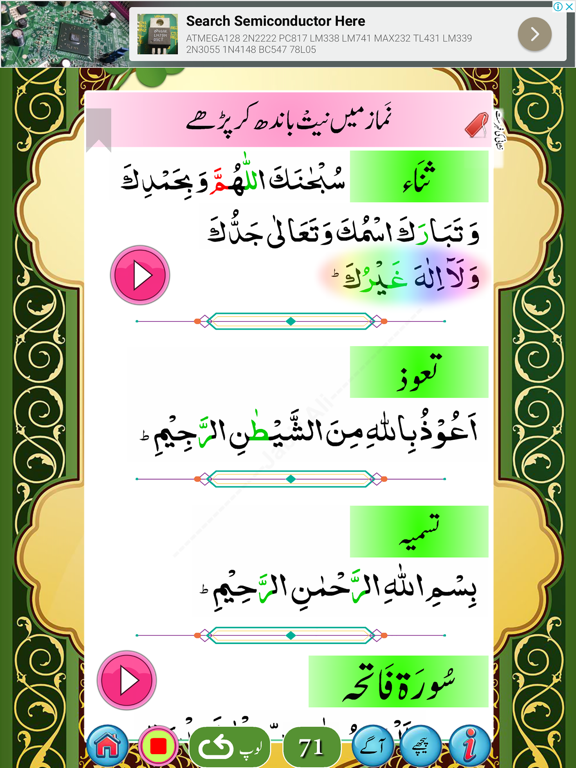 Search Semiconductor Here
ATMEGA128 2N2222 PC817 LM338 LM741 MAX232 TL431 LM339
2N3055 1N4148 BC547 78L05
نَماز میں نیتْ باندھ کر پڑھے
ثنَاء
سُبْحٰنَكَ اللّٰهُمَّ وَ بِحَمْدِكَ
وَ تَبَارَكَ اسْمُكَ وَ تَعَالٰى جَدُّكَ
وَ لَآ اِلٰهَ غَيْرُكَ ؕ
تعوذ
اَعُوْذُ بِاللّٰهِ مِنَ الشَّيْطٰنِ الرَّجِيْمِ ؕ
تسمیہ
بِسْمِ اللّٰهِ الرَّحْمٰنِ الرَّحِيْمِ ؕ
سُورَة فَاتحَہ
لوپ
71
آگے
پیچھے
i